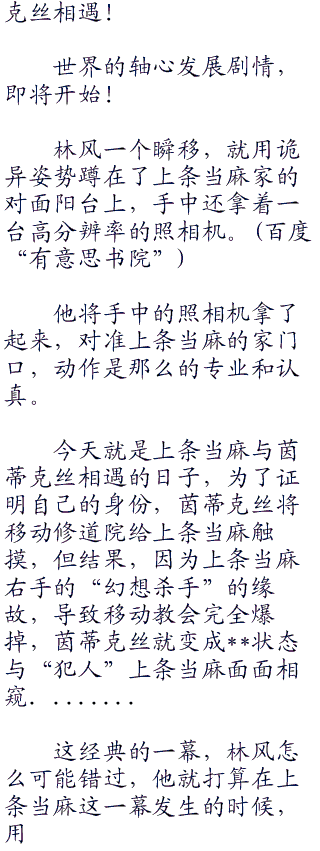 克丝相遇！
世界的轴心发展剧情，
即将开始！
林风一个瞬移，就用诡
异姿势蹲在了上条当麻家的
对面阳台上，手中还拿着一
台高分辨率的照相机。(百度
“有意思书院”)
他将手中的照相机拿了
起来，对准上条当麻的家门
口，动作是那么的专业和认
真。
今天就是上条当麻与茵
蒂克丝相遇的日子，为了证
明自己的身份，茵蒂克丝将
移动修道院给上条当麻触
摸，但结果，因为上条当麻
右手的“幻想杀手”的缘
故，导致移动教会完全爆
掉，茵蒂克丝就变成**状态
与“犯人”上条当麻面面相
窥．.......
这经典的一幕，林风怎
么可能错过，他就打算在上
条当麻这一幕发生的时候，
用